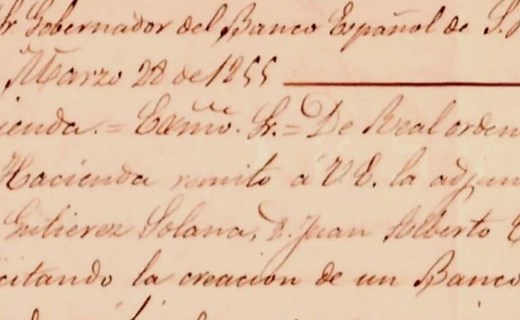 Sr Gobernador del Banco Español de S.
Marzo 28 de 1855
ienda.= Exmo. Sr.= De Real orden
Hacienda remito a V.E. la adjun
Gutierez Solana, D. Juan Alberto
citando la creacion de un Banco